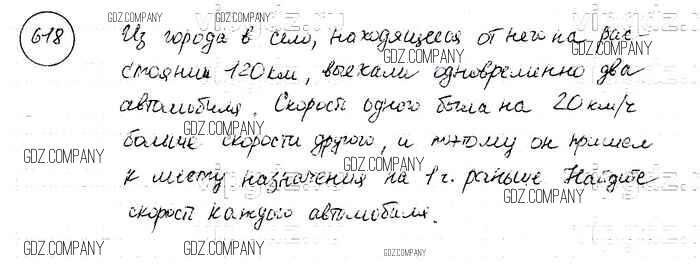 618
Из города в село, находящееся от него на рас-
стоянии 120 км, выехали одновременно два
автомобиля. Скорость одного была на 20 км/ч
больше скорости другого, и поэтому он пришел
к месту назначения на 1 ч. раньше. Найдите
скорость каждого автомобиля.
GDZ.COMPANY
GDZ.COMPANY
GDZ.COMPANY
GDZ.COMPANY
GDZ.COMPANY
GDZ.COMPANY
GDZ.COMPANY
GDZ.COMPANY
GDZ.COMPANY
GDZ.COMPANY
GDZ.COMPANY
GDZ.COMPANY
GDZ.COMPANY